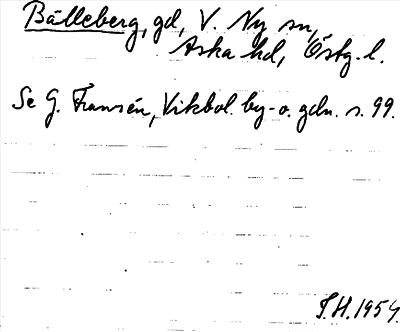 Bälleberg, gd, V. Ny sn,
Aska hd, Östg. l.
Se G. Fransén, Vikbol. by- o. gdn. s. 99.
T.H. 1954.